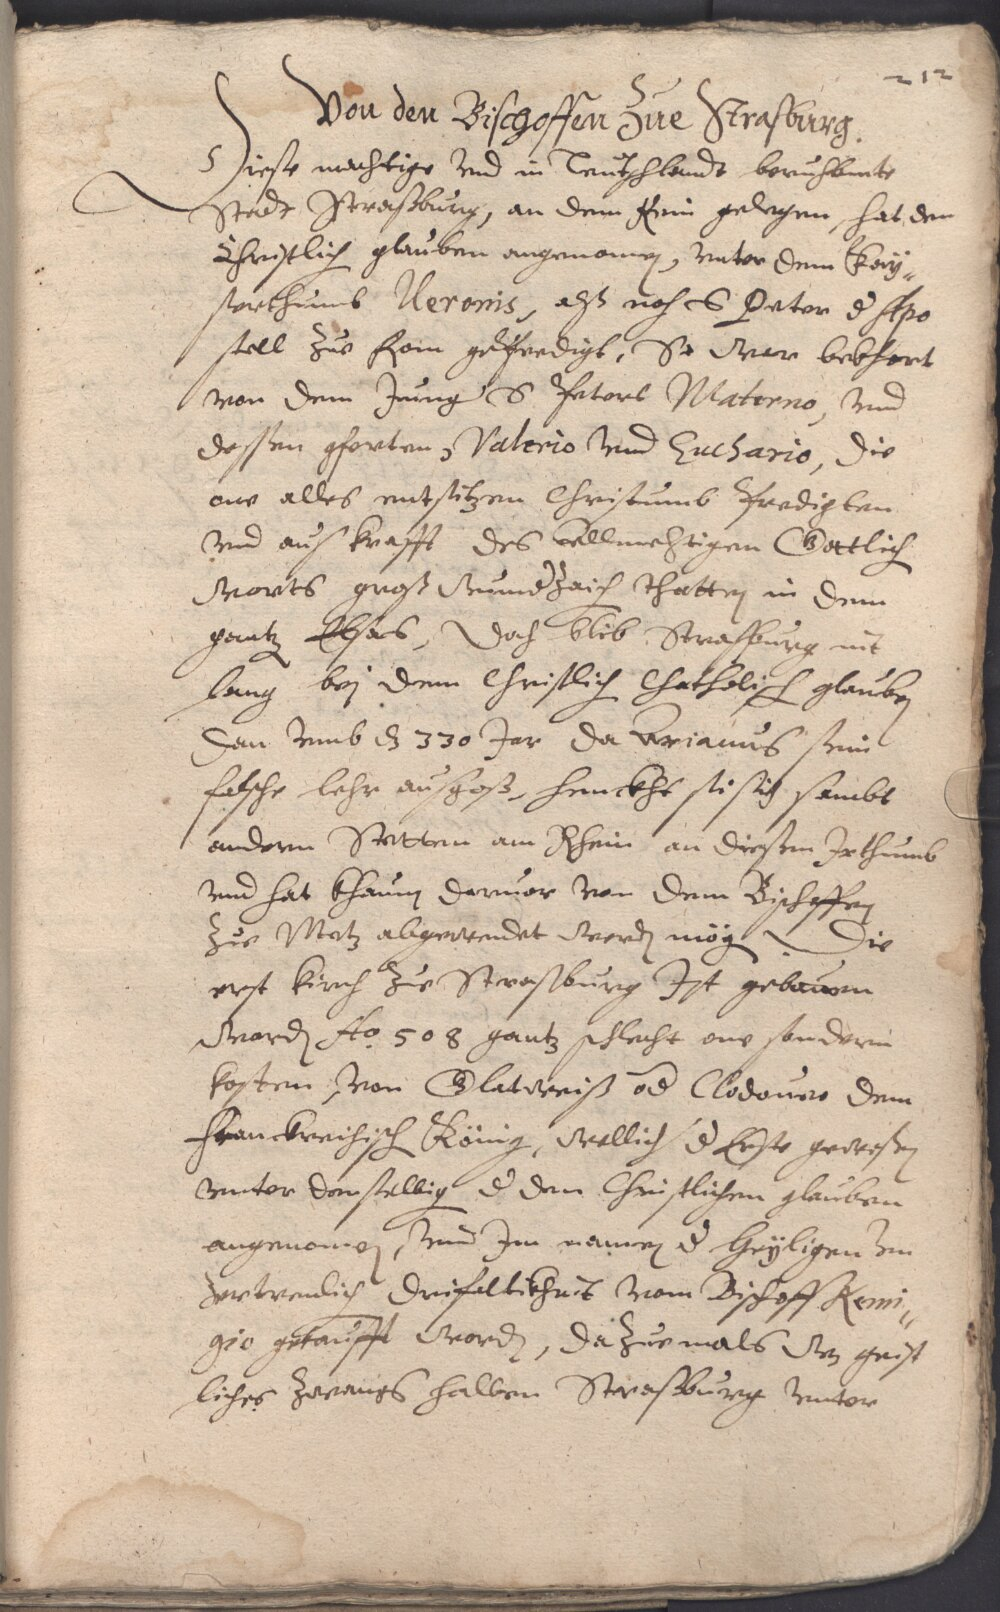 212
Von den Bischoffen Zue Strasburg.
Diese machtige vnd in Teutschlandt beruhbmte
Stadt Straßburg, an dem Rein gelegen, hat den
Christlich glauben angenomen, vnter dem Kaÿ„
serthumb Neronis, alß noch S Peter d Apo
stell zue Rom geprediget, Sÿ war bekhert
von dem Jung S Peters Materno, vnd
dessen gferten, Valerio vnd Euchario, die
one alles entsitzen Christumb Predigten
vnd aus krafft des allmechtigen Gottlich
Worts groß Wunderzaich thatten in dem
gantz Elsas, Doch blib Straßburg nit
lang beÿ dem Christlich Chatholisch glauben
Dan vmb dz 330 Jar da Arianus sein
falsche lehr ausgoß, henckht sie sich sambt
andern Stetten am Rhein an diesem Jrthumb
vnd hat khaum daruor von dem Bischoffen
zue Metz abgewendet werden mög. Die
erst kirch zue Straßburg Jst gebauen
worden Ao 508 gantz schlecht one sondern
kosten, von Clodoueo dem
Franckreichisch König, Wellich d Erste gewesen
vnter denselbig d den Christlichen glauben
angenomen, vnd Jm namen d Heÿligen vn
zertrenlich Drifaltikheit vom Bischoff Remi„
gio getaufft worden, Da zuemals Wz geist
liches zwangs halben Straßburg vnter